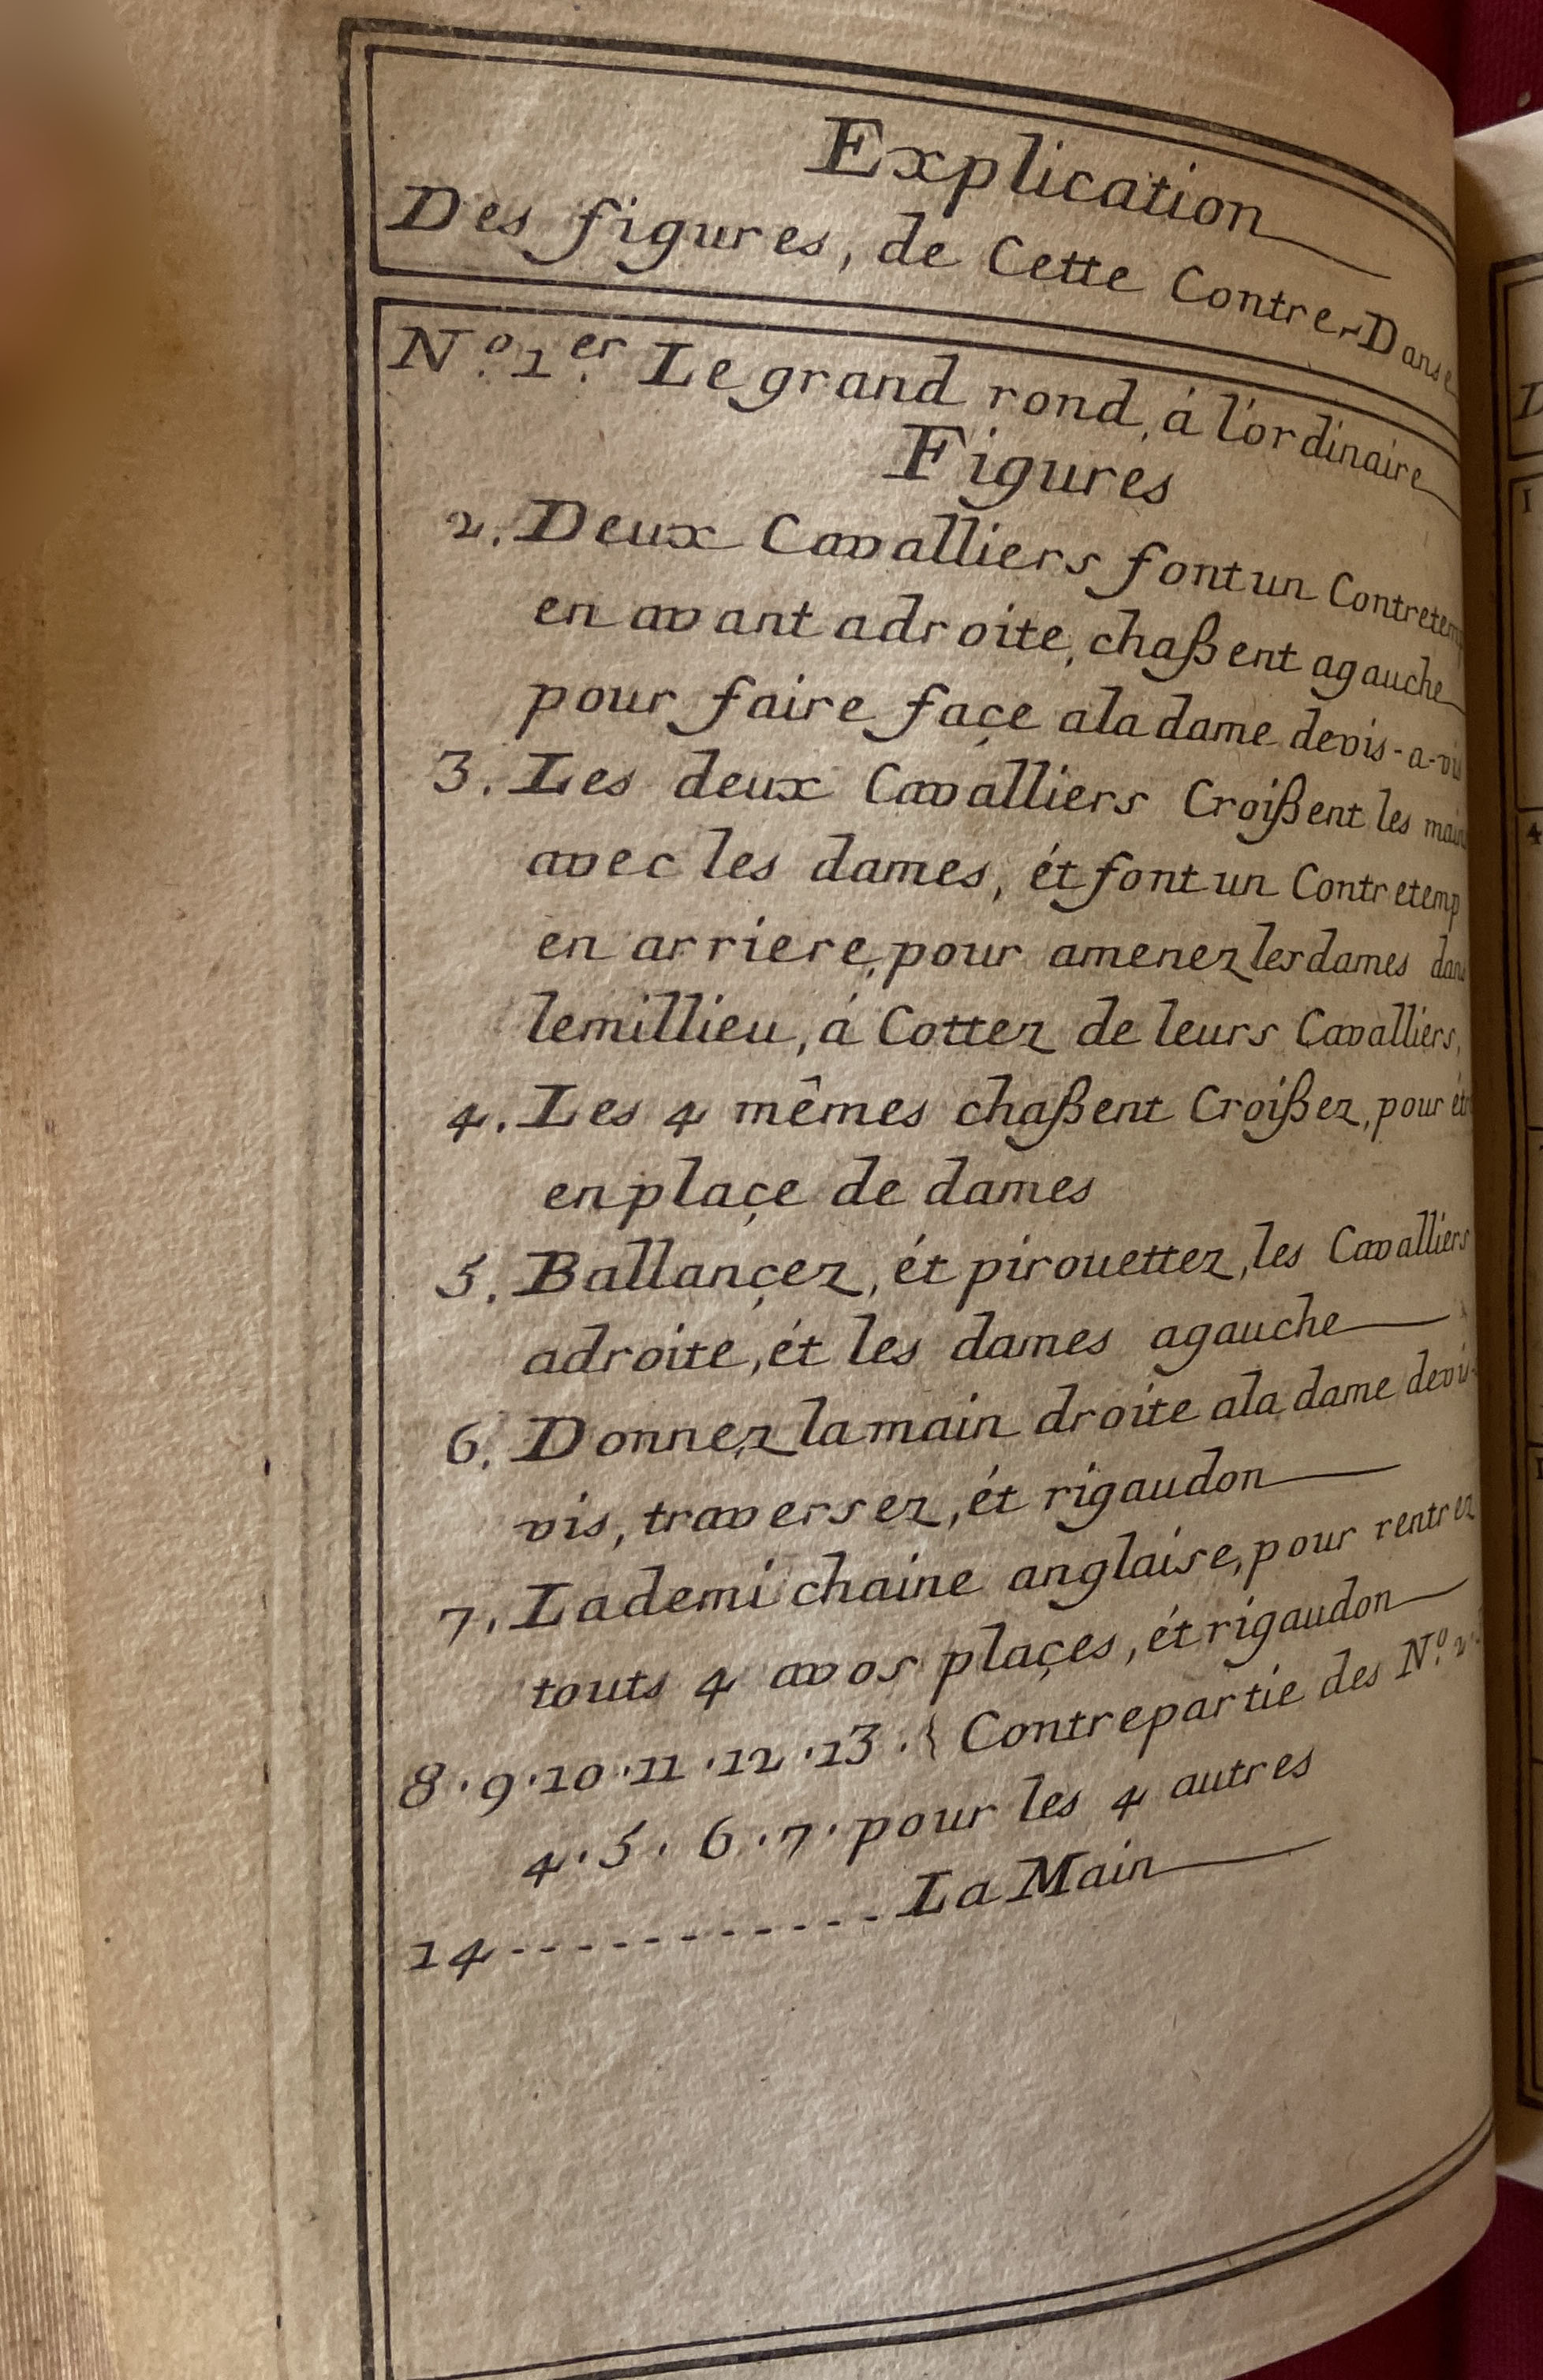 Explication
Des figures, de Cette Contre-Danse
N.º 1.er Le grand rond, á l'ordinaire
Figures
2. Deux Cavalliers font un Contretem
en avant adroite, chaßent agauche
pour faire façe ala dame devis-a-vis
3. Les deux Cavalliers Croißent les main
avec les dames, ét font un Contretemp
en arriere, pour amenez les dames dans
le millieu, á Cottez de leurs Cavalliers,
4. Les 4 mêmes chaßent Croißez, pour
en plaçe de dames
5. Ballançez, ét pirouettez, les Cavalliers
adroite, ét les dames agauche
6. Donnez la main droite ala dame devis-
vis, traversez, ét rigaudon
7. La demi chaine anglaise, pour rentrez
touts 4 avos plaçes, ét rigaudon
8 . 9 . 10 . 11 . 12 . 13 . { Contrepartie des N.º 2.
4 . 5 . 6 . 7 . pour les 4 autres
14 ------------ La Main
1
4